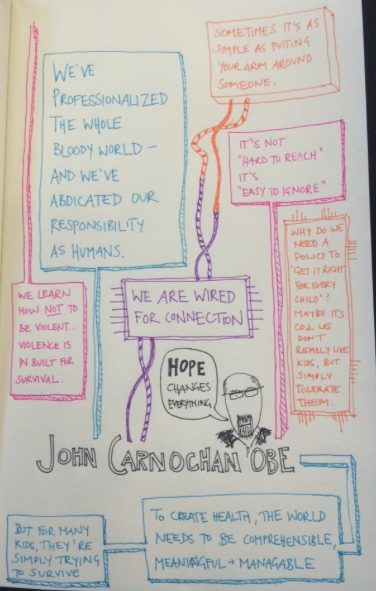 SOMETIMES IT'S AS
SIMPLE AS PUTTING
YOUR ARM AROUND
SOMEONE.
WE'VE
PROFESSIONALIZED
THE WHOLE
BLOODY WORLD –
AND WE'VE
ABDICATED OUR
RESPONSIBILITY
AS HUMANS.
IT'S NOT
"HARD TO REACH'
IT'S
"EASY TO IGNORE"
WHY DO WE
NEED A
POLICY TO
'GET IT RIGHT
FOR EVERY
CHILD'?
MAYBE IT'S
COZ WE
DON'T
REALLY LIKE
KIDS, BUT
SIMPLY
TOLERATE
THEM.
WE LEARN
HOW NOT TO
BE VIOLENT...
VIOLENCE IS
IN BUILT FOR
SURVIVAL.
WE ARE WIRED
FOR CONNECTION
HOPE
CHANGES
EVERYTHING
JOHN CARNOCHAN OBE
TO CREATE HEALTH, THE WORLD
NEEDS TO BE COMPREHENSIBLE,
MEANINGFUL + MANAGABLE
BUT FOR MANY
KIDS, THEY'RE
SIMPLY TRYING
TO SURVIVE